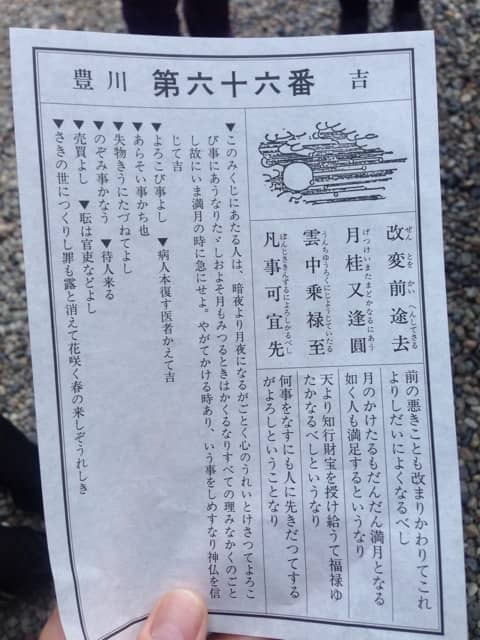 豊川 第六十六番 吉
改変前途去
ぜんとをかいへんしてさる
月桂又逢圓
げつけいまたまどかなるにあう
雲中乗禄至
うんちゆうろくにじようじていたる
凡事可宜先
ぼんじさきんずるによろしかるべし
前の悪きことも改まりかわりてこれ
よりしだいによくなるべし
月のかけたるもだんだん満月となる
如く人も満足するというなり
天より知行財宝を授け給うて福禄ゆ
たかなるべしというなり
何事をなすにも人に先きだつてする
がよろしということなり
▼このみくじにあたる人は、暗夜より月夜になるがごとく心のうれいとけさつてよろこ
び事にあうなりたゞしおよそ月もみつるときはかくるなりすべての理みなかくのごと
し故にいま満月の時に急にせよ。やがてかける時あり、いう事をしめすなり神仏を信
じて吉
▼よろこび事よし ▼病人本復す医者かえて吉
▼あらそい事かち也
▼失物きうにたづねてよし
▼のぞみ事かなう ▼待人来る
▼売買よし ▼耺は官吏などよし
▼さきの世につくりし罪も露と消えて花咲く春の来しぞうれしき